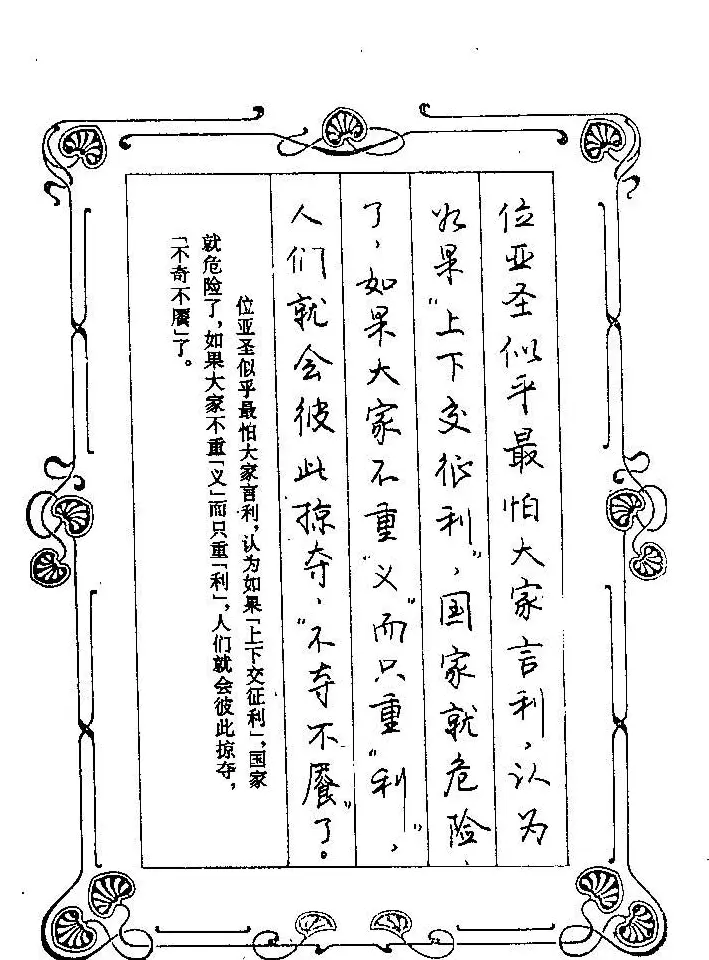 位亚圣似乎最怕大家言利，认为
如果“上下交征利”，国家就危险
了，如果大家不重“义”而只重“利”，
人们就会彼此掠夺，“不夺不餍”了。
位亚圣似乎最怕大家言利，认为如果「上下交征利」，国家
就危险了，如果大家不重「义」而只重「利」，人们就会彼此掠夺，
「不奇不餍」了。